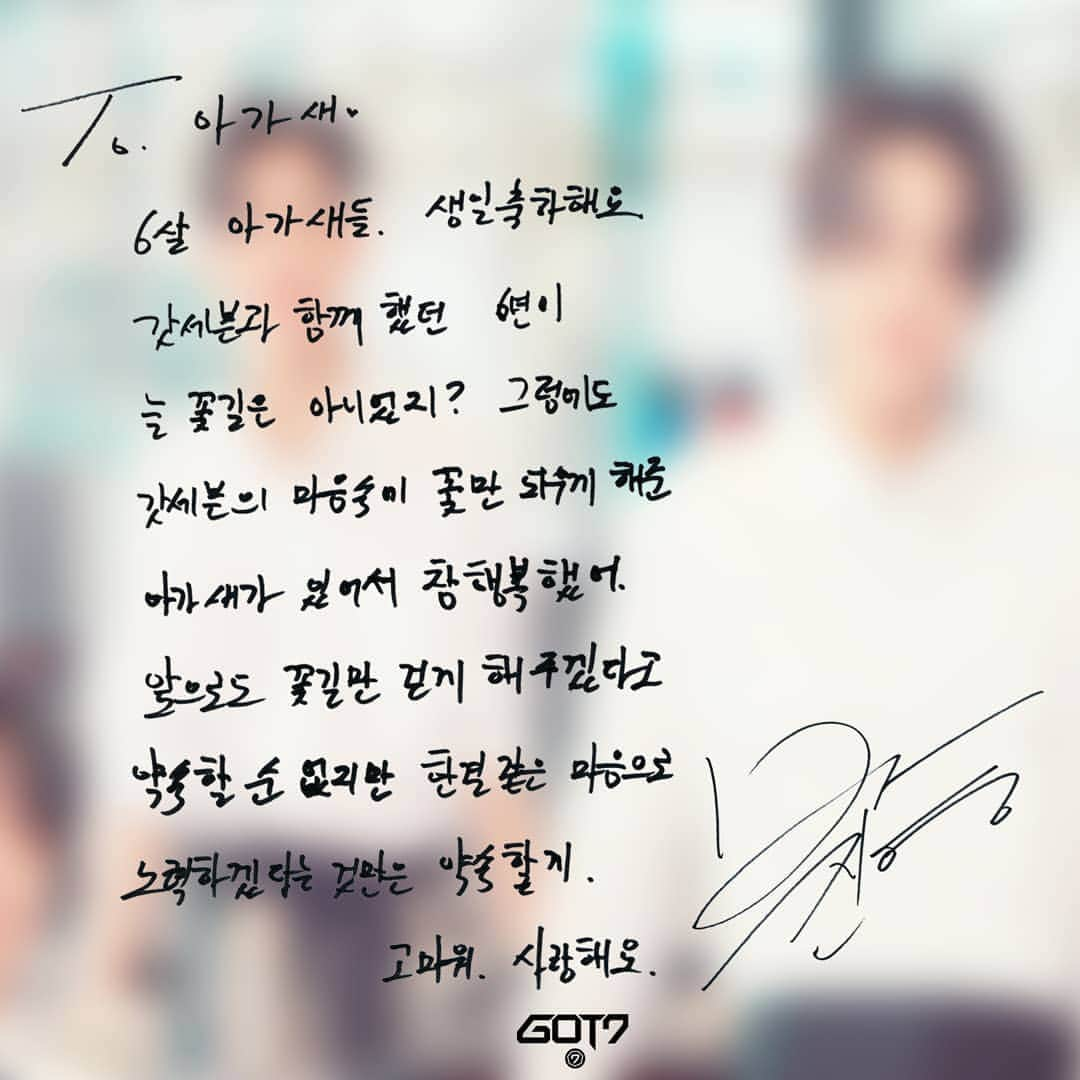 To. 아가새♥
6살 아가새들. 생일축하해요
갓세븐과 함께 했던 6년이
늘 꽃길은 아니었지? 그럼에도
갓세븐의 마음속이 꽃만 피우게 해준
아가새가 있어서 참 행복했어.
앞으로도 꽃길만 걷게 해주겠다고
약속할 순 없지만 한결같은 마음으로
노력하겠다는 것만은 약속할게.
고마워. 사랑해요.
GOT7